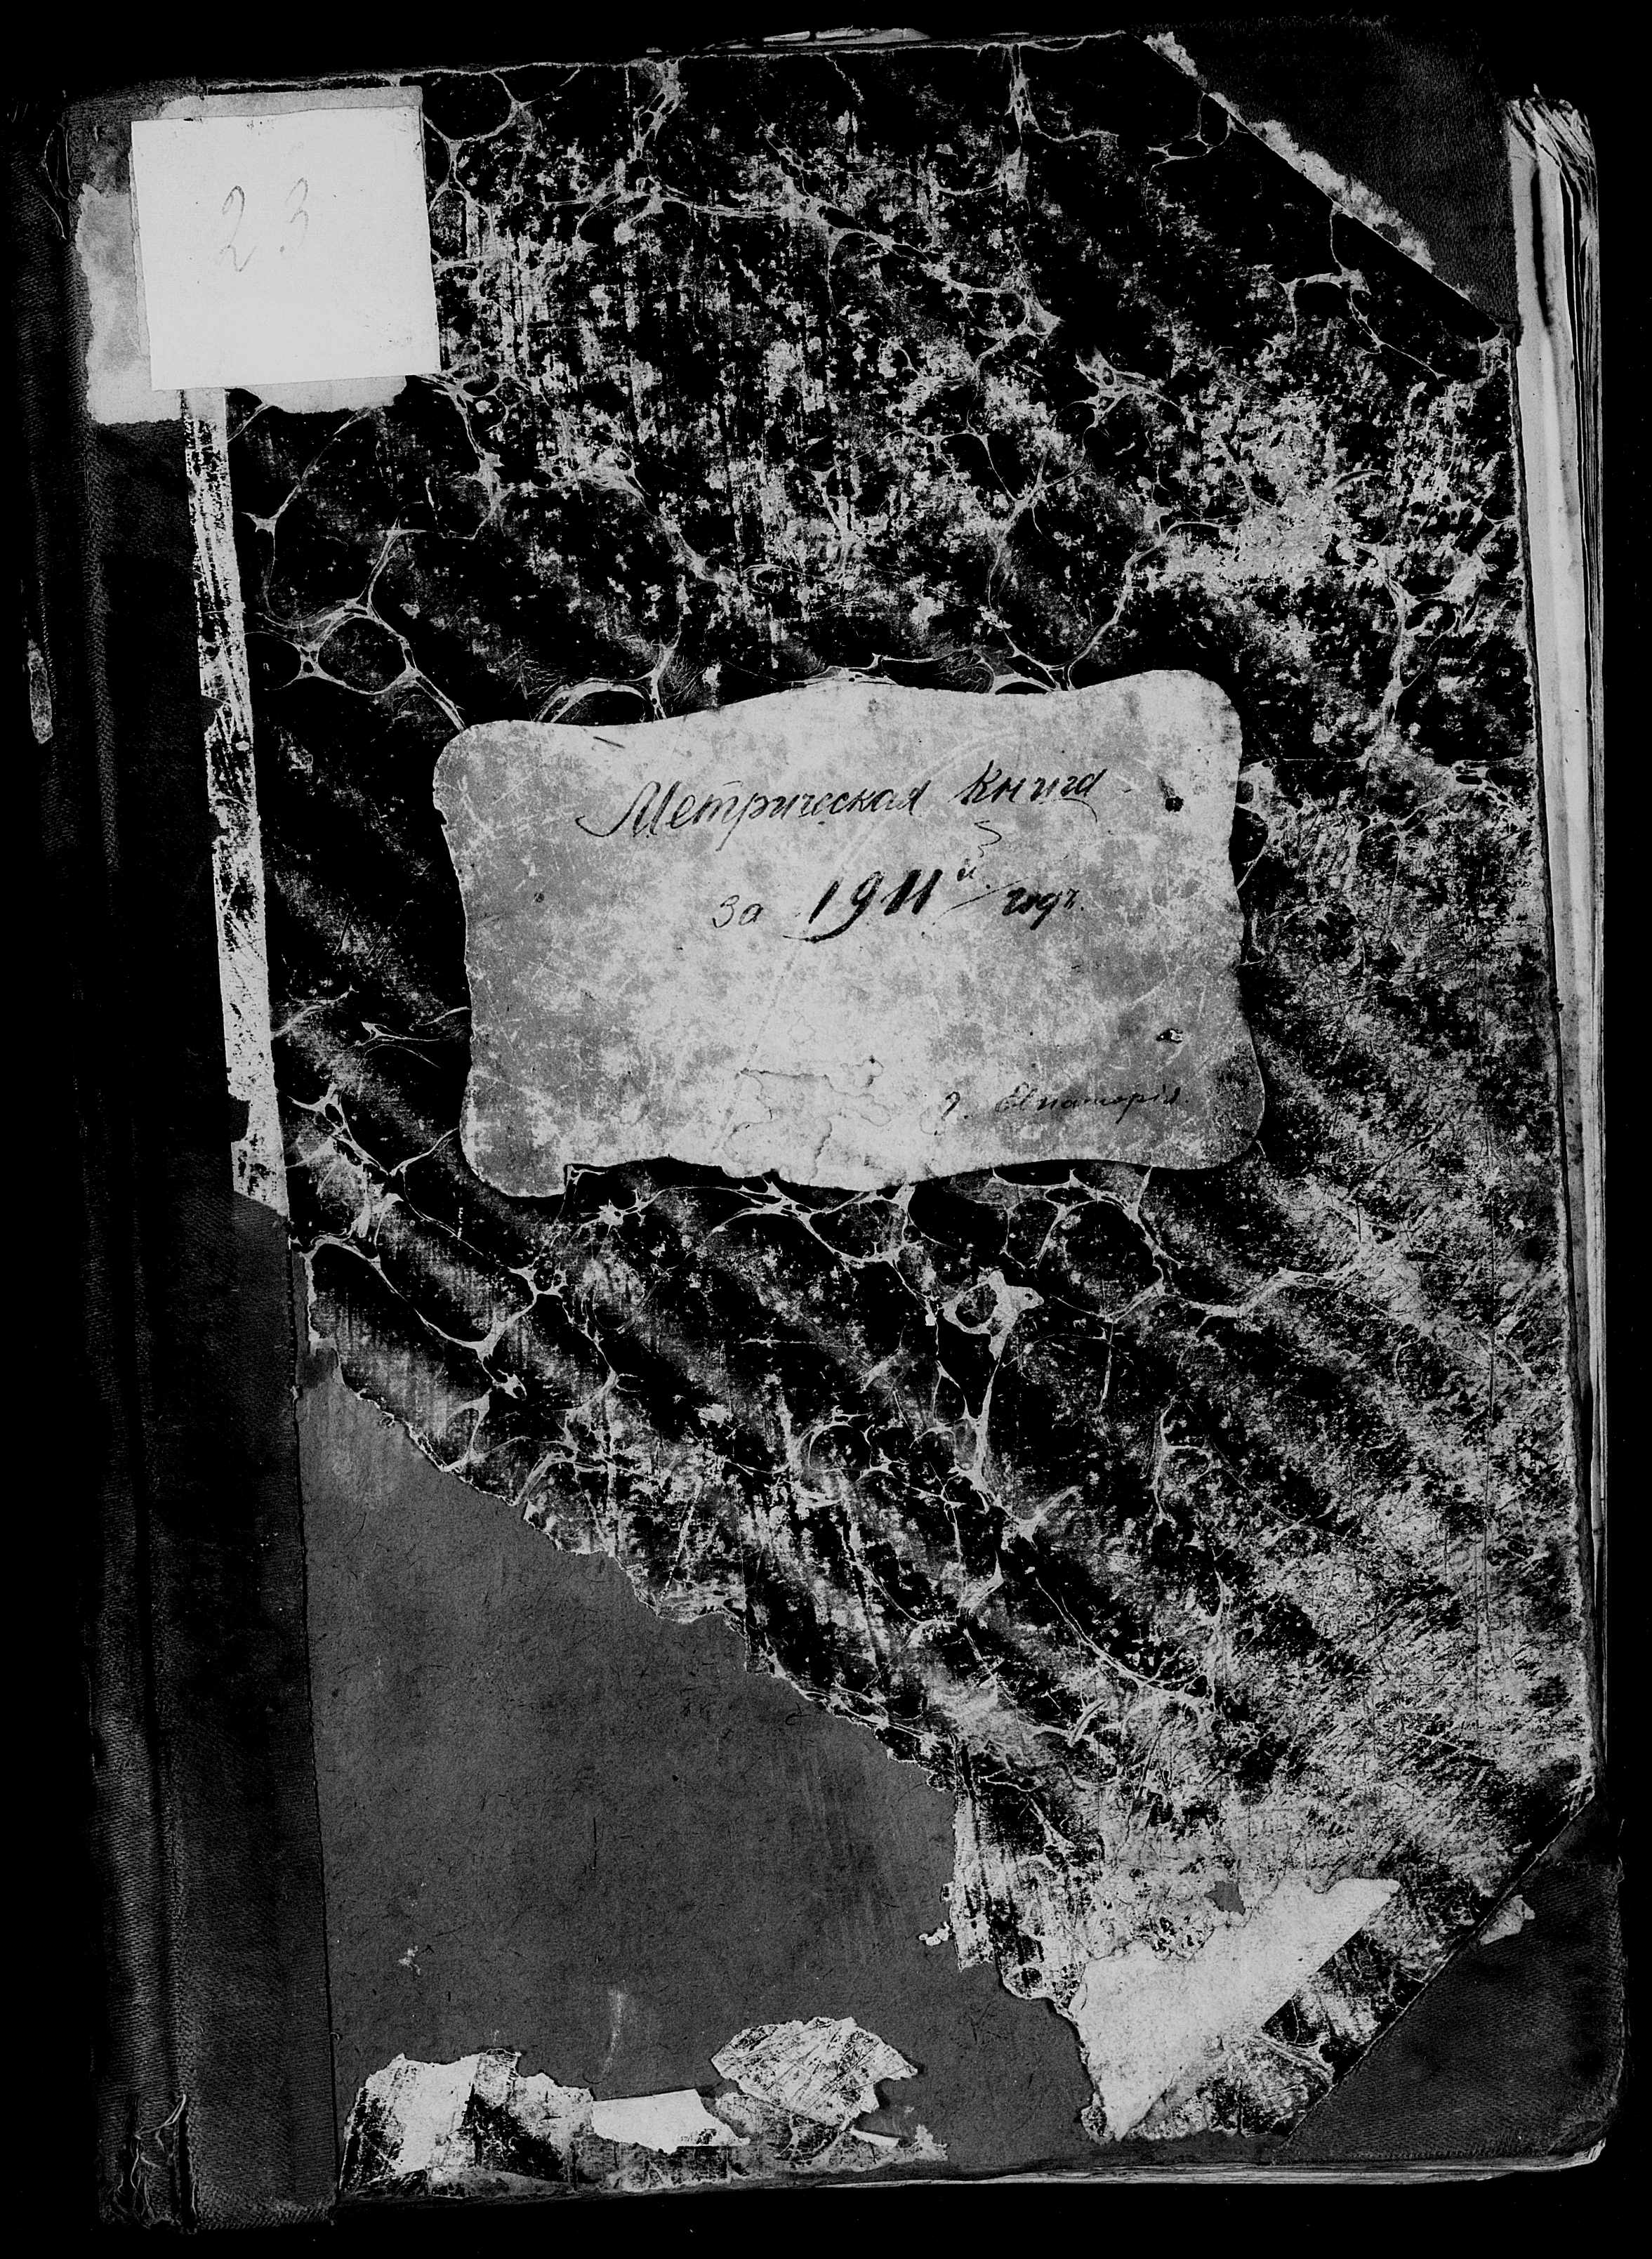 23
Метрическая Книга
за 1911й годъ.
г. Евпаторія